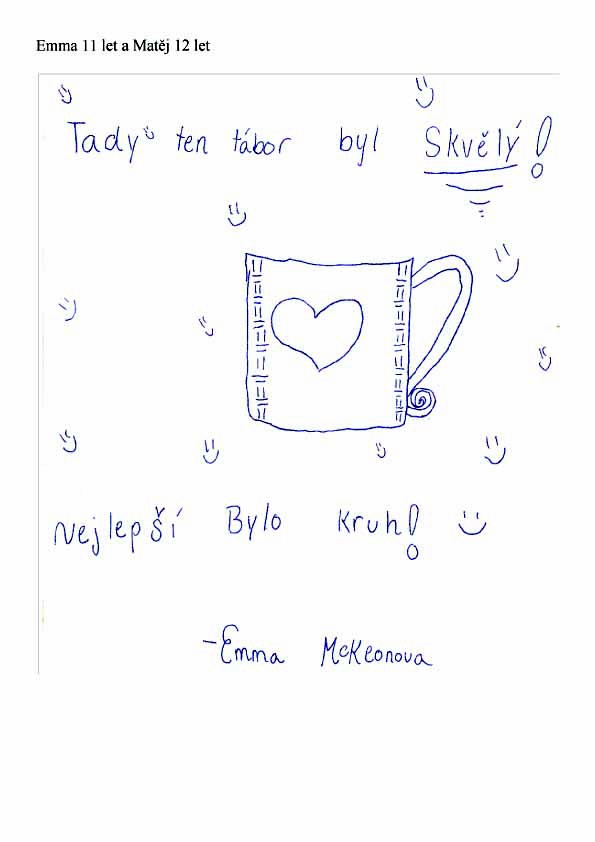 Emma 11 let a Matěj 12 let
Tady ten tábor byl Skvělý!
Nejlepší Bylo Kruh!
-Emma McKeonova